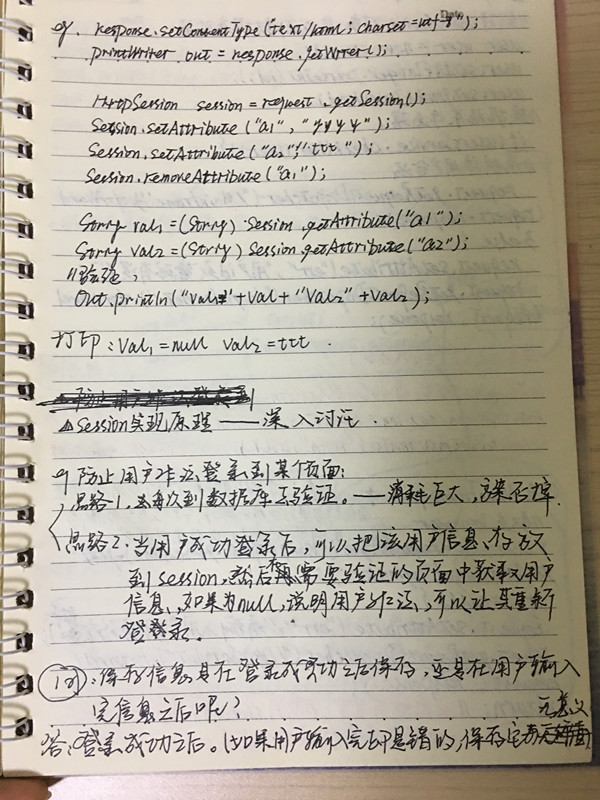 eg. response.setContentType("text/html; charset=utf-8");
printWriter out = response.getWriter();
HttpSession session = request.getSession();
Session.setAttribute("a1", "yyyy");
Session.setAttribute("a2", "ttt");
Session.removeAttribute("a1");
String val1 = (String) Session.getAttribute("a1");
String val2 = (String) Session.getAttribute("a2");
//验证,
Out.println("val1"+val+"val2"+val2);
打印:val1=null val2=ttt.
△Session实现原理——深入讨论.
eg 防止用户非法登录到某个页面:
思路1. 每次到数据库去验证。——消耗巨大,方案否掉.
思路2. 当用户成功登录后,可以把该用户信息存放
到session,然后再需要验证的页面中获取用户
信息,如果为null,说明用户非法,可以让其重新
登录。
问:保存信息是在登录成功之后保存,还是在用户输入
完信息之后呢?
答:登录成功之后。(如果用户输入完却是错的,保存它无意义